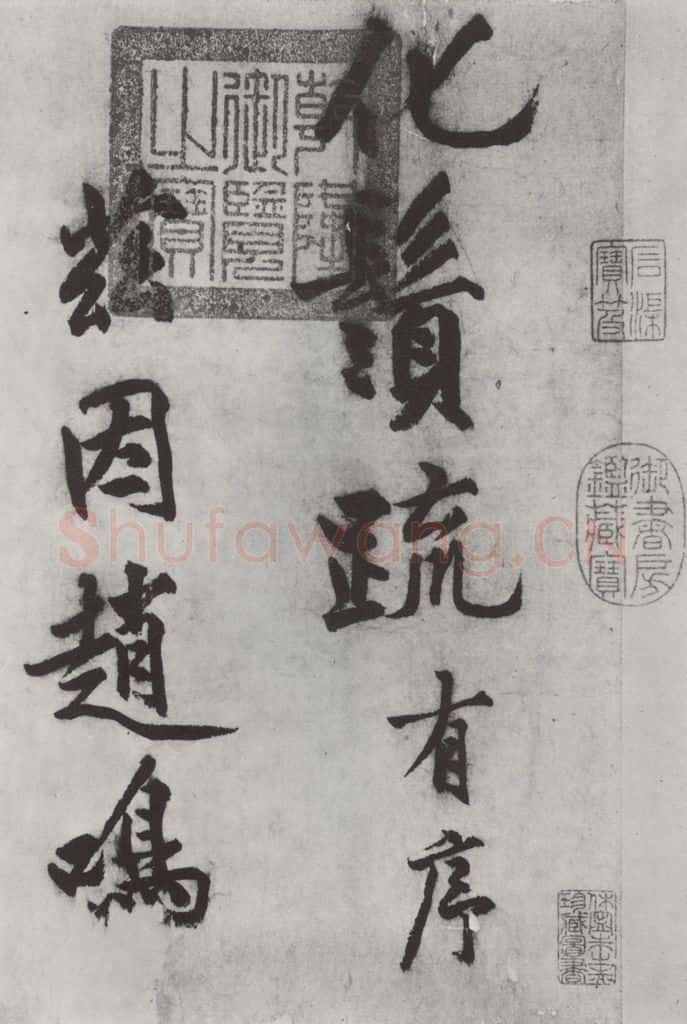 石渠
寶笈
御書房
鑑藏寶
休寧朱之赤
珍藏圖書
化鬚疏有序
乾隆
御覽
之寶
茲因趙鳴
Shufawang.CN